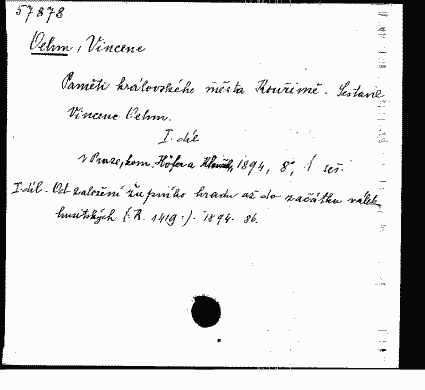 57878
Oehm, Vincenc
Paměti královského města Kouřimě. Sestavil
Vincenc Oehm.
I. díl
v Praze, kom. Höfer a Klouček, 1894, 8°, 1 seš.
I. díl. Od založení župního hradu až do začátku válek
husitských (: R. 1419 :). 1894. 86.